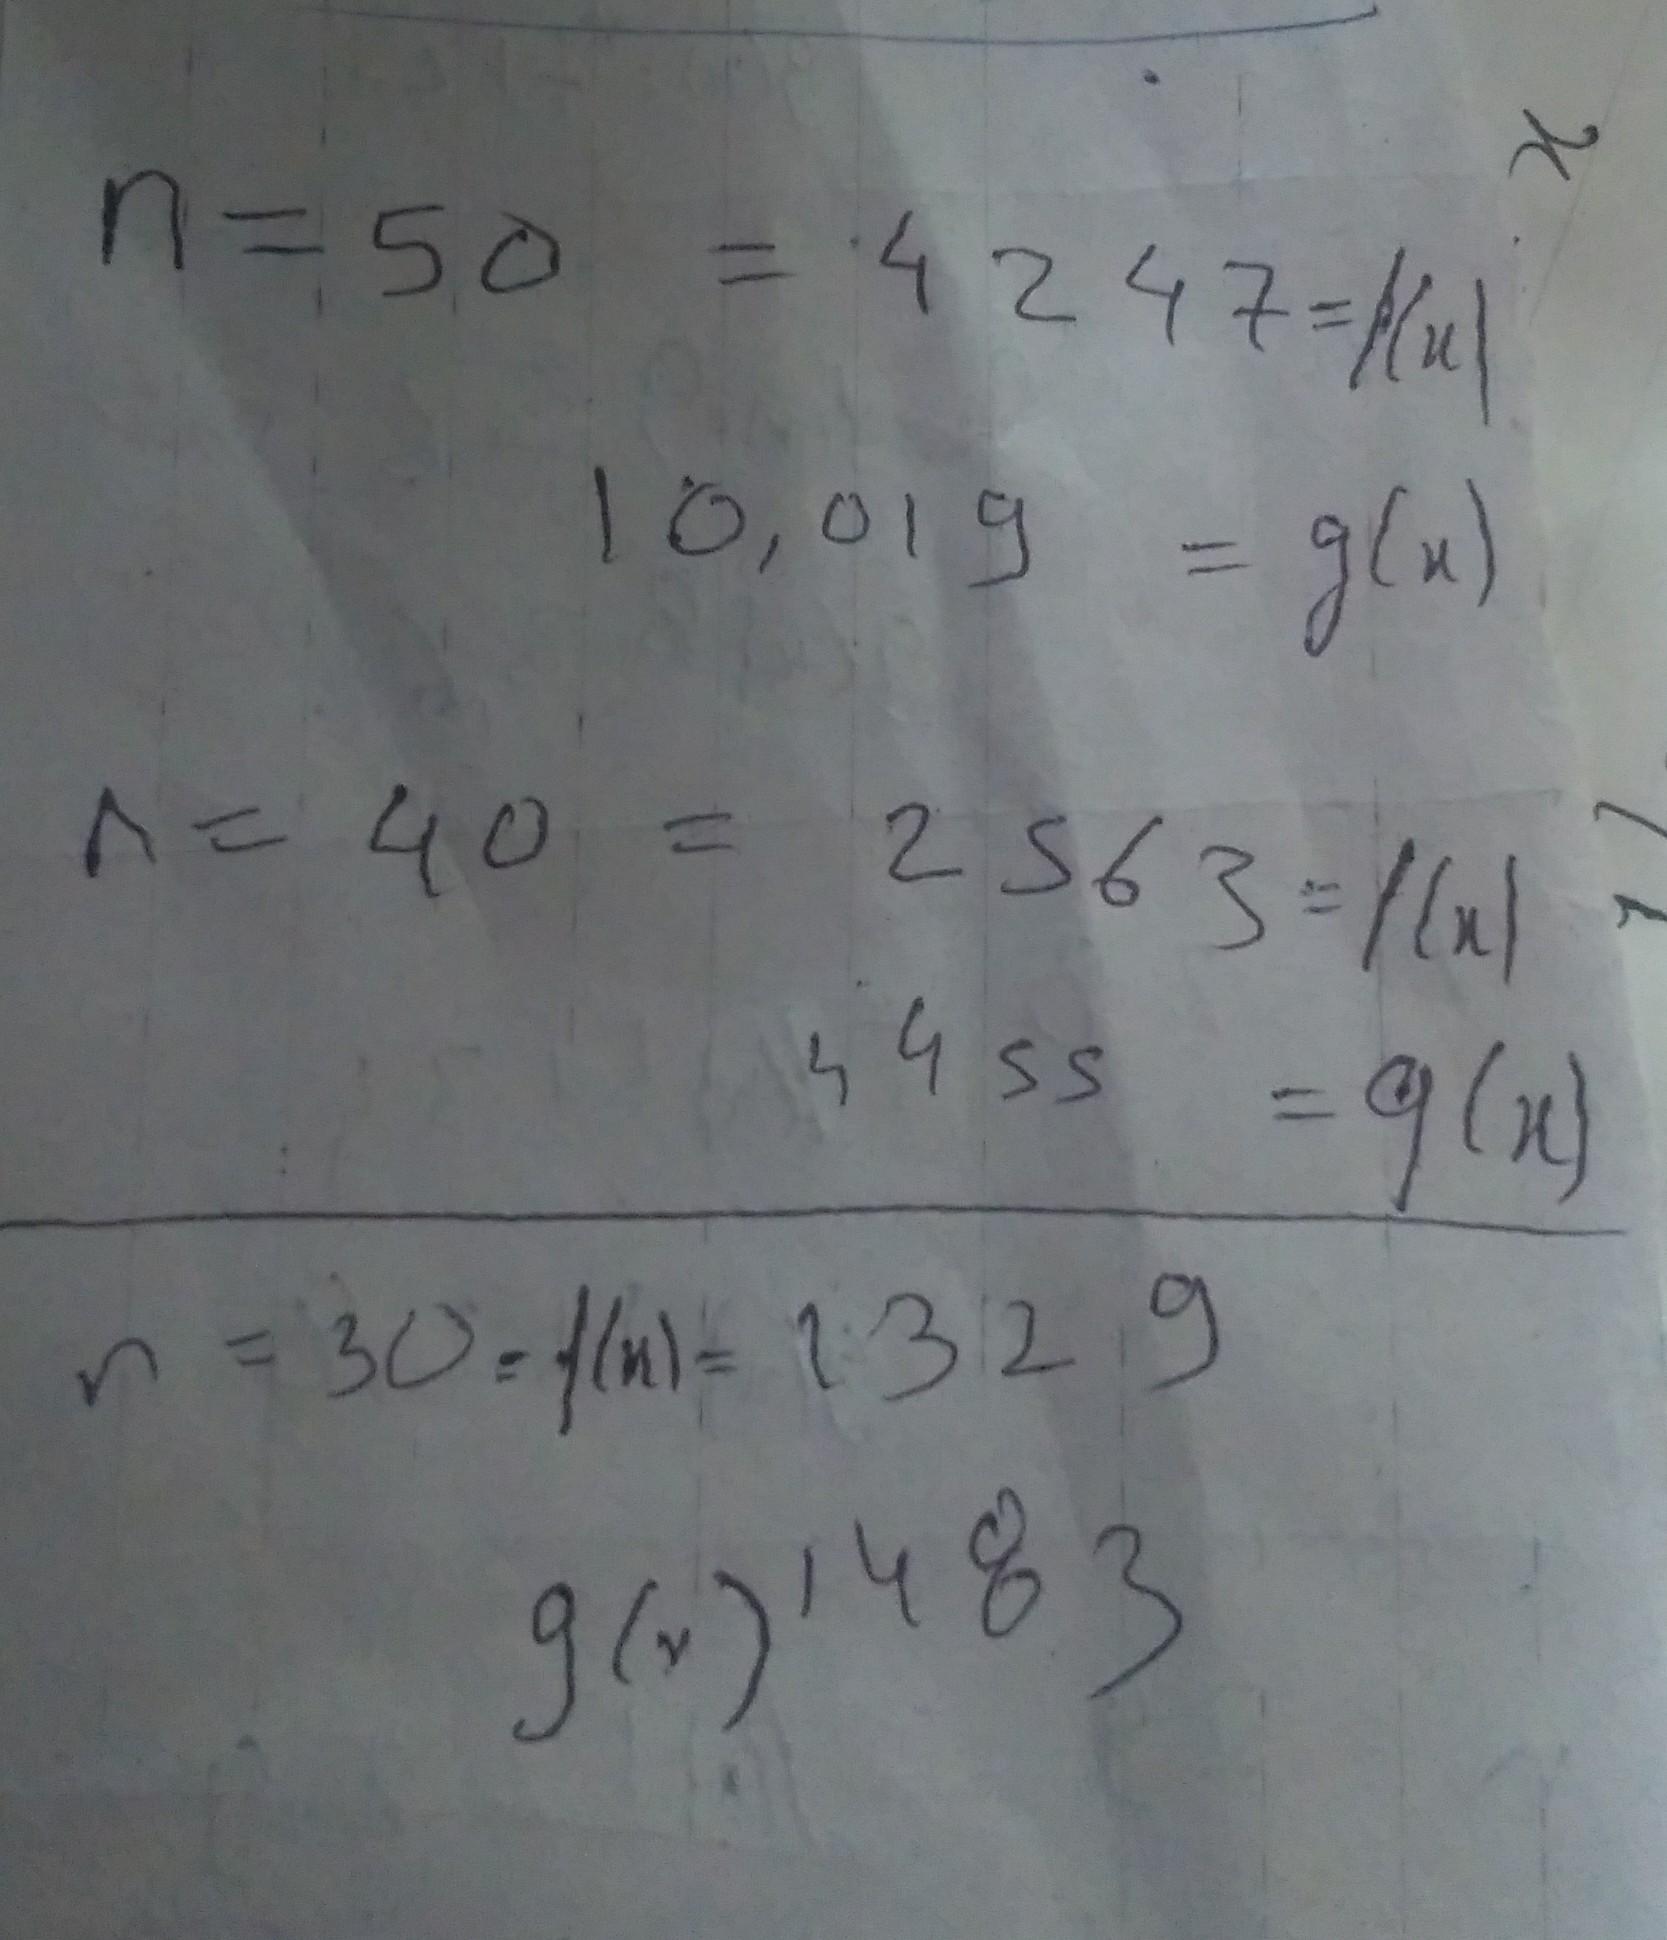 n = 50 = 4247 = f(x)
10,019 = g(x)
n = 40 = 2563 = f(x)
4455 = g(x)
n = 30 = f(x) = 1329
g(x) 1483